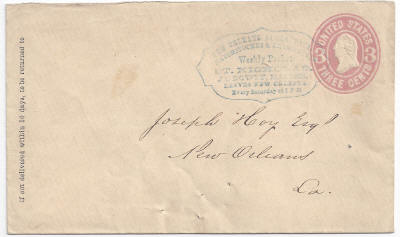 If not delivered within 10 days, to be returned to
Weekly Packet
LEAVES NEW ORLEANS
Every Saturday at 5 P.M.
UNITED STATES
3 3
THREE CENTS
Joseph Hoy Esqr
New Orleans
La.